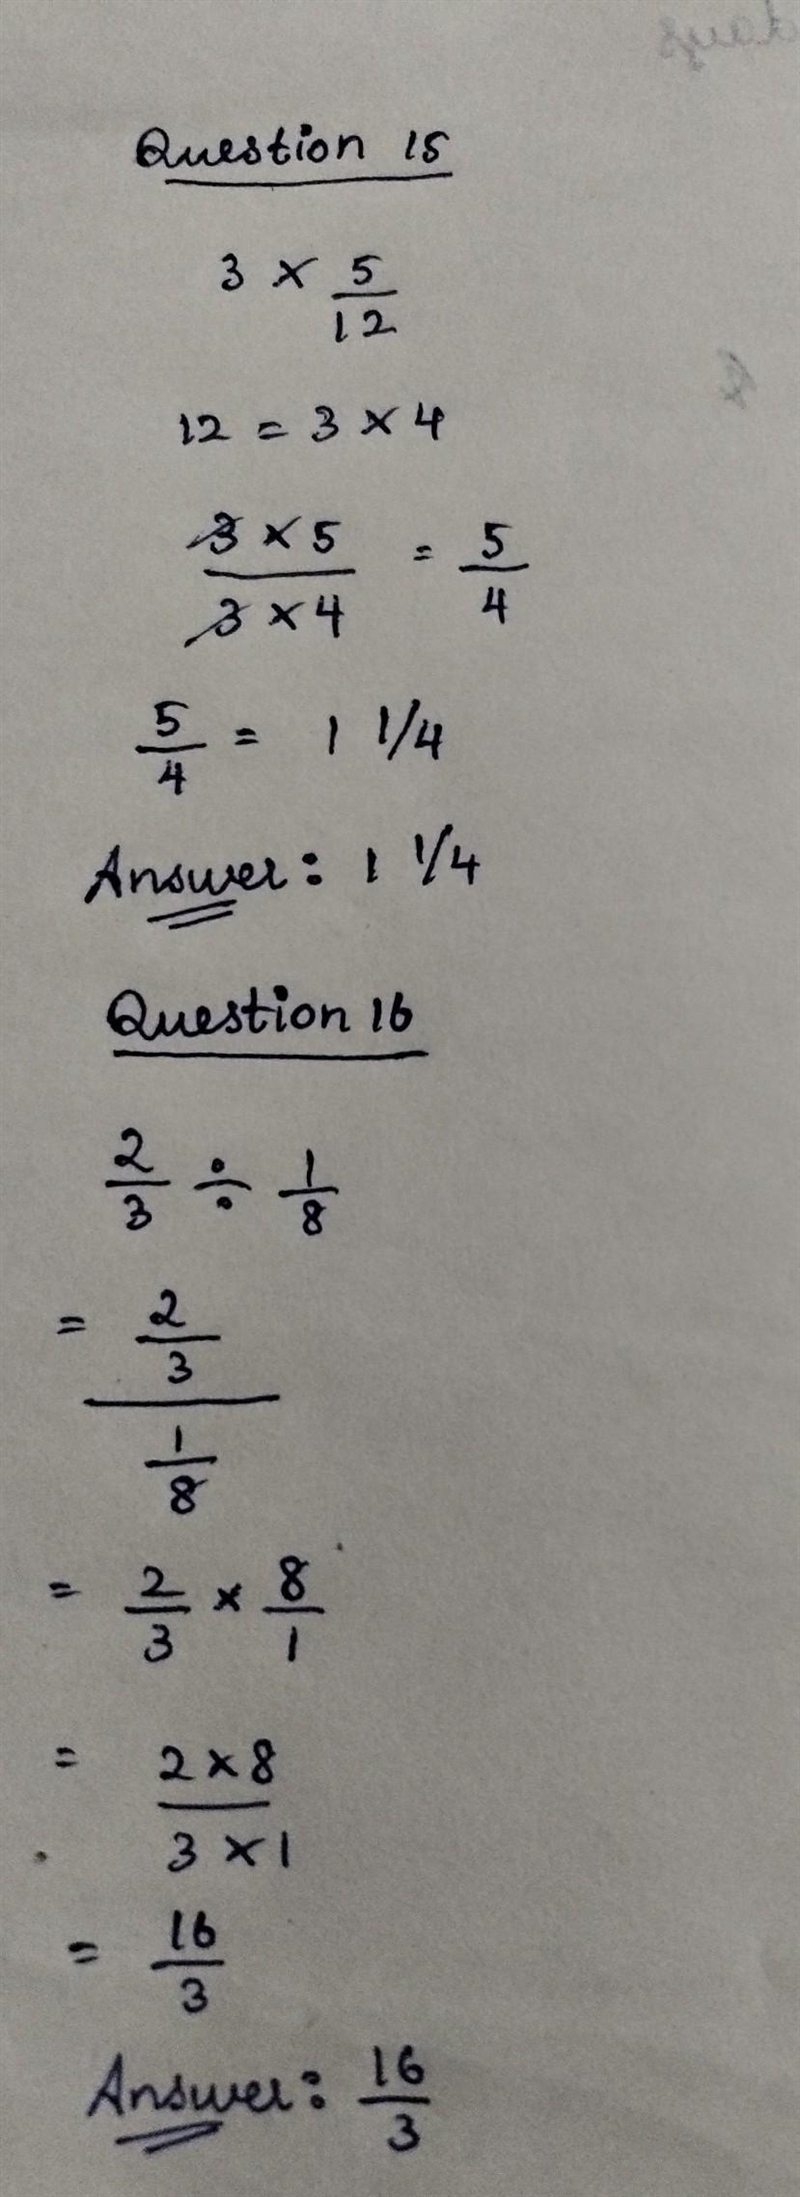 days
Question 15
3 × 5/12
12 = 3 × 4
3 × 5 / 3 × 4 = 5/4
5/4 = 1 1/4
Answer: 1 1/4
Question 16
2/3 ÷ 1/8
= 2/3 / 1/8
= 2/3 × 8/1
= 2 × 8 / 3 × 1
= 16/3
Answer: 16/3